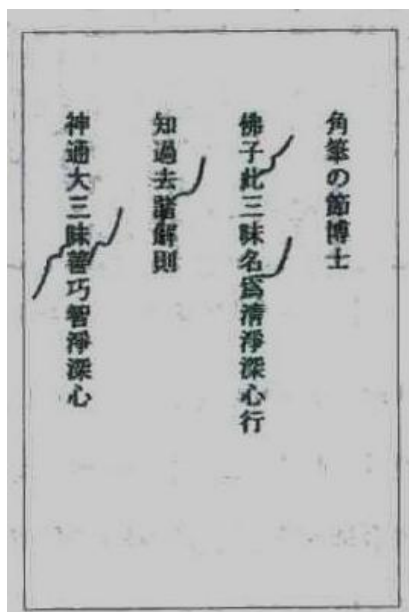 角筆の節博士
佛子此三昧名爲清淨深心行
知過去諸解則
神通大三昧善巧智淨深心